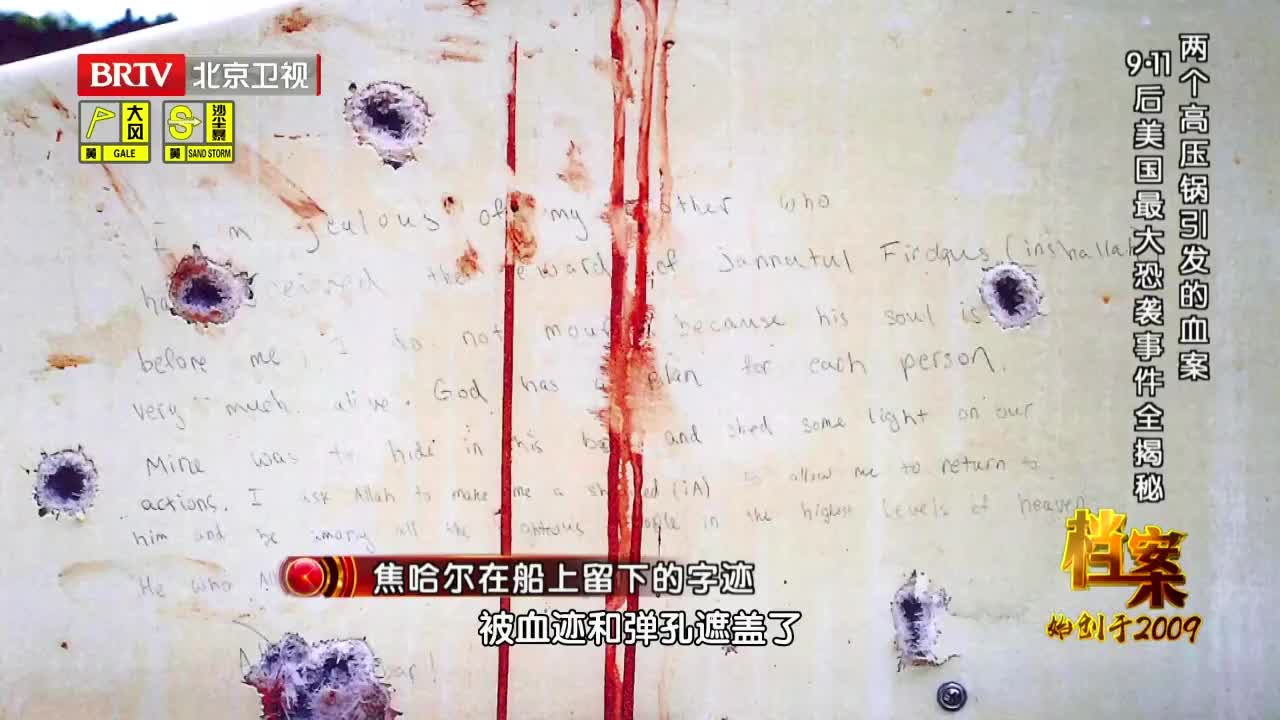 BRTV 北京卫视
大风
黄 GALE
沙尘暴
黄 SAND STORM
两个高压锅引发的血案
9·11后美国最大恐袭事件全揭秘
I m jealous of my other who
ha ceived the reward of Jannutul Firdaus (inshallah
before me. I do not mour because his soul is
very much alive. God has a plan for each person.
Mine was to hide in this bo and shed some light on our
actions. I ask Allah to make me a sh ed (iA) to allow me to return to
him and be among all the ighteous people in the highest levels of heaven.
He who Al
A bar!
焦哈尔在船上留下的字迹
被血迹和弹孔遮盖了
档案
始创于2009